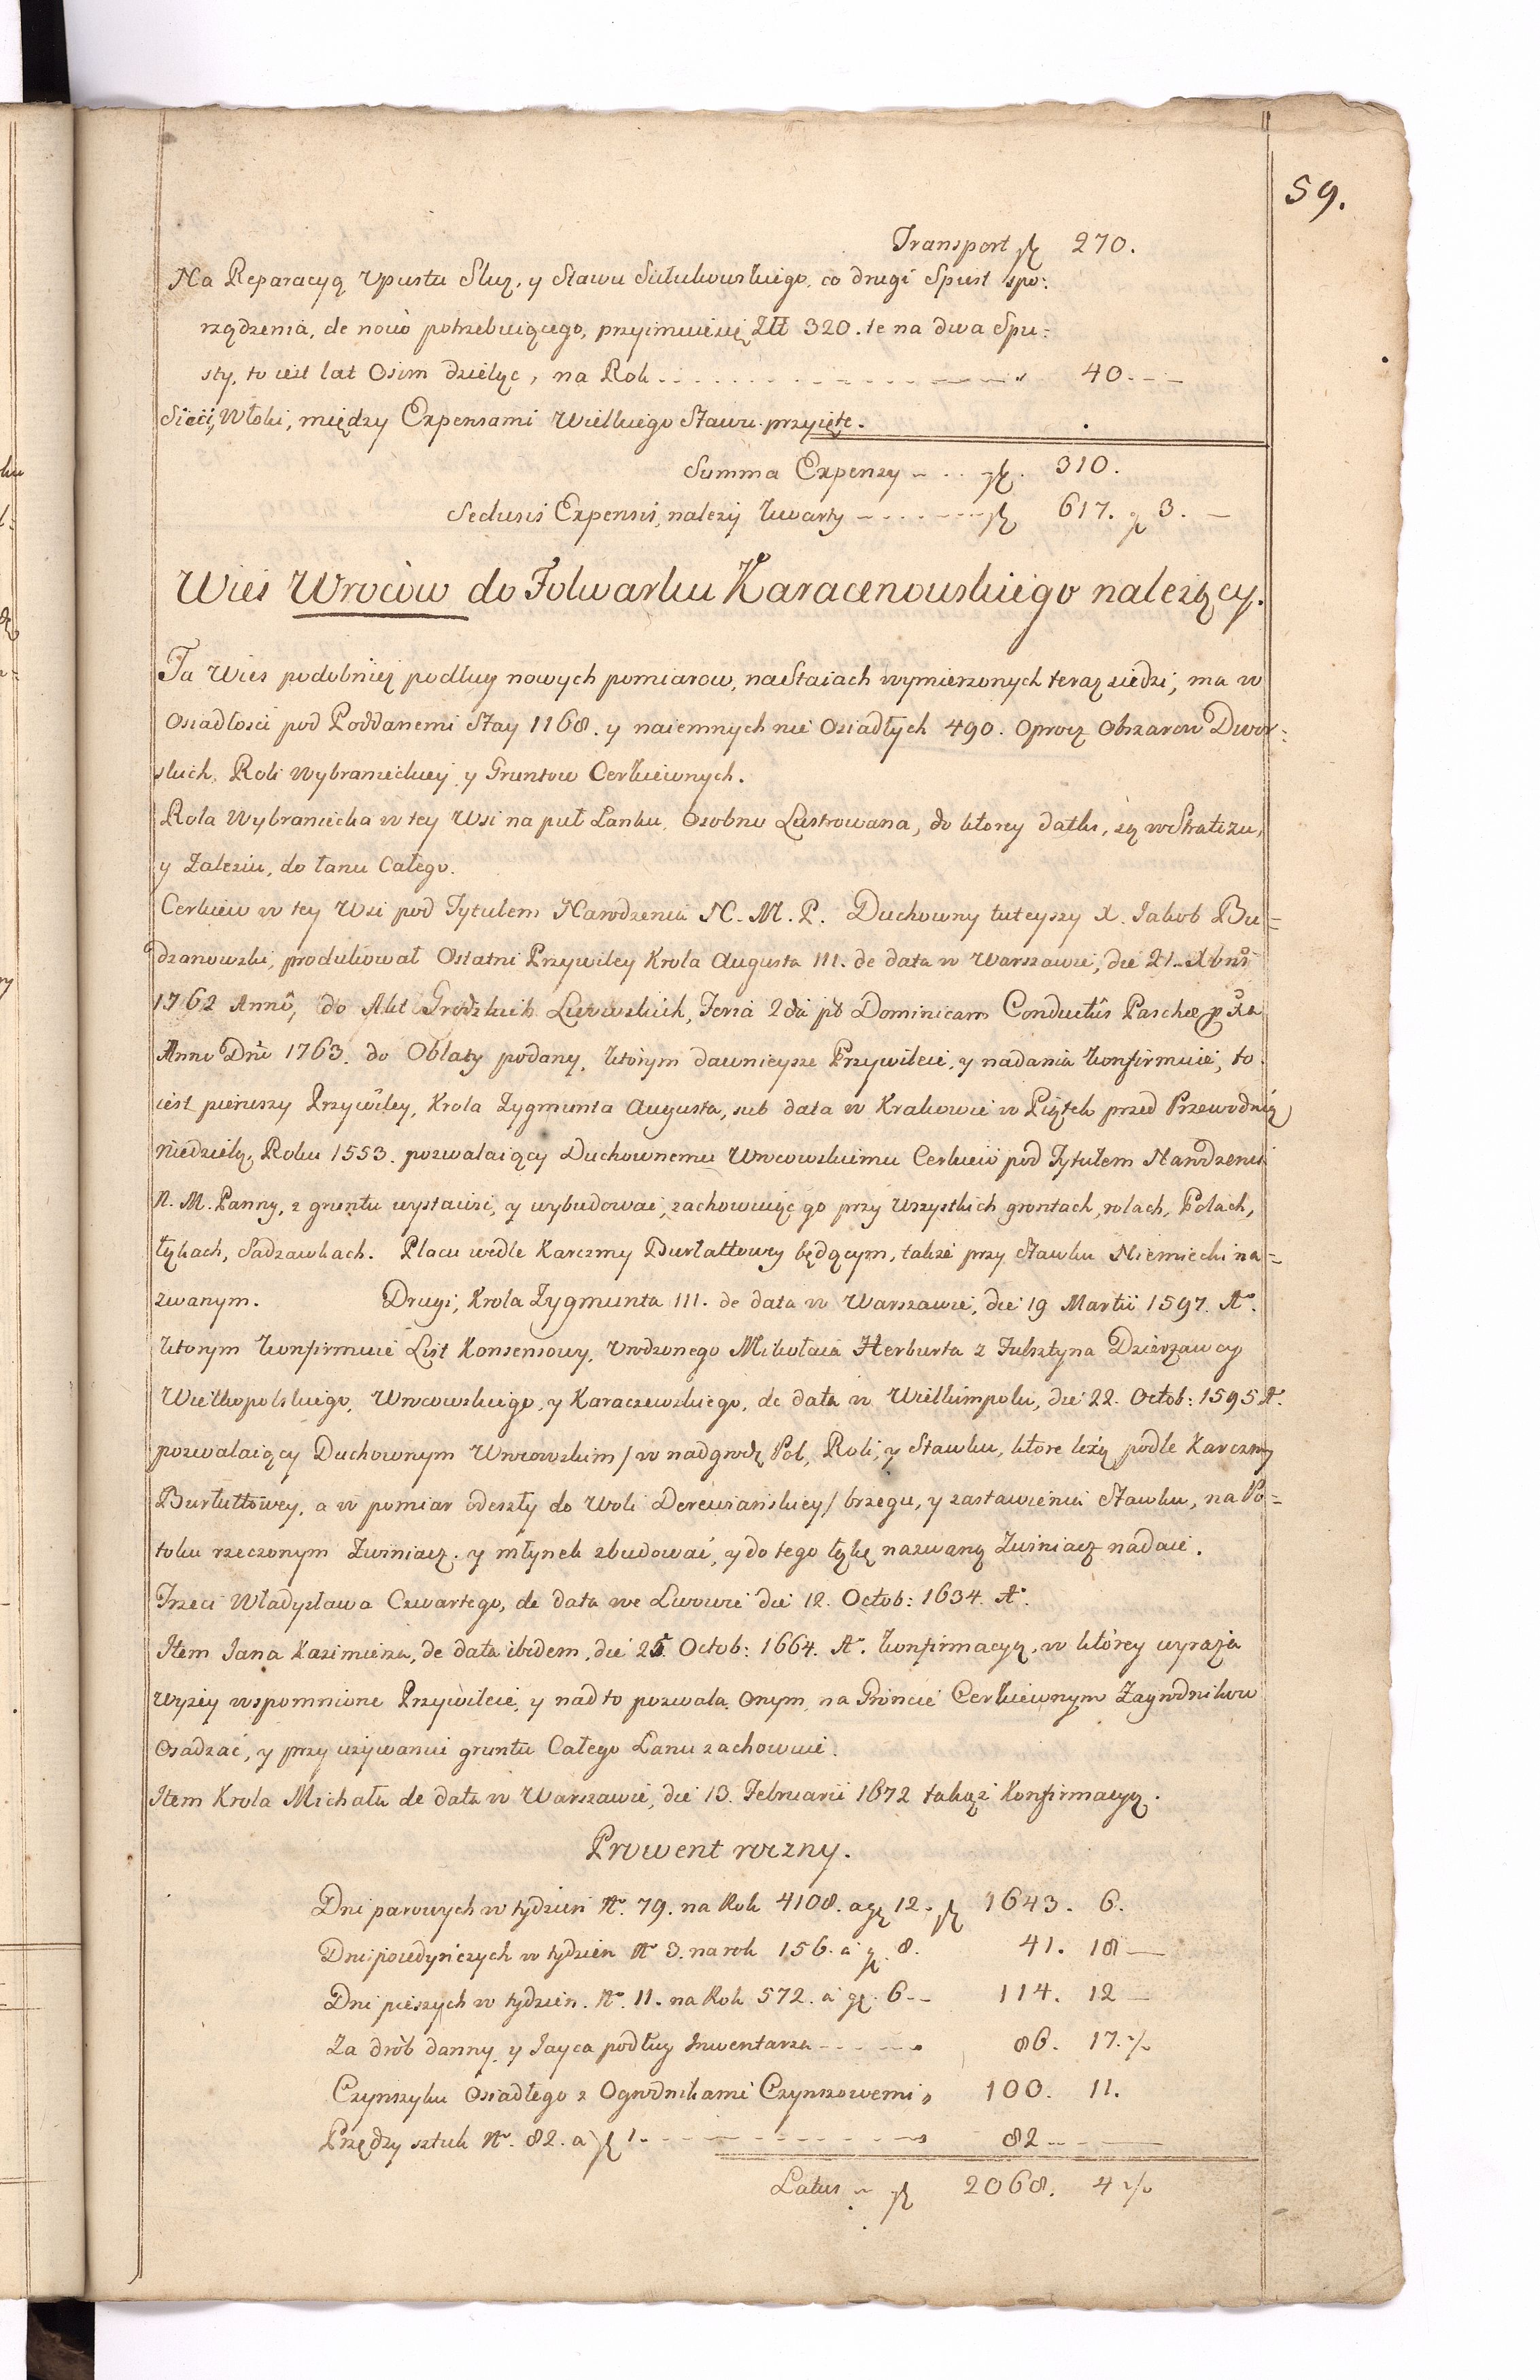 59.
Transport zł 270.
Na Reparacyą Upustu Sluz, y Stawu Sułukowskiego, co drugi Spust spo:
rządzenia, de novo potrzebuiącego, przyimuie się Złł 320. te na dwa Spu:
sty, to iest lat Osim dzieląc, na Rok 40.
Sieci, Włoki, między Expensami Wielkiego Stawu przyięte.
Summa Expensy zł. 310.
Seclusis Expensis, nalezy kwarty zł 617. g 3.
Wies Wrocow do Folwarku Karaczenowskiego nalezący.
Ta Wies podobniez podług nowych pomiarow, na Staiach wymierzonych teraz siedzi, ma w
Osiadłosci pod Poddanemi Stay 1168. y naiemnych nie Osiadłych 490. Oprocz Obszarow Dwor=
skich, Roli Wybranieckiey, y Gruntow Cerkiewnych.
Rola Wybraniecka w tey Wsi na puł Łanku, Osobno Lustrowana, do ktorey datki, są w Stratizu,
y Zalesiu, do łanu Całego.
Cerkiew w tey Wsi pod Tytułem Narodzenia N. M. P. Duchowny tuteyszy X. Jakob Bu=
dzanowski, produkował Ostatni Przywiley Krola Augusta III. de data w Warszawie, die 21 Xbris
1762 Anno, do Akt Grodzkich Lwowskich, Feria 2da pt Dominicam Conductus Paschae pxa
Anno Dni 1763. do Oblaty podany, ktorym dawnieysze Przywileie, y nadania konfirmuie, to
iest pierwszy Przywiley, Krola Zygmunta Augusta, sub data w Krakowie w Piątek przed Przewodnią
Niedzielą, Roku 1553. pozwalaiący Duchownemu Wrocowskiemu Cerkiew pod Tytułem Narodzenia
N. M. Panny, z gruntu wystawić, y wybudować, zachowuiąc go przy Wszystkich grontach, rolach, Polach,
łąkach, Sadzawkach. Placu wedle Karczmy Burłattowey będącym, takze przy Stawku Niemiecki na=
zwanym. Drugi, Krola Zygmunta III. de data w Warszawie, die 19 Martii 1597. Ao.
ktorym konfirmuie List Konsensowy, Urodzonego Mikołaia Herburta z Fulsztyna Dzierzawcy
Wielkopolskiego, Wrocowskiego, y Karaczewskiego, de data w Wielkimpolu, die 22. Octob: 1595 Ao.
pozwalaiący Duchownym Wrocowskim / w nadgrodę Pol, Roli, y Stawku, ktore lezą podle Karczmy
Burłuttowey, a w pomiar odeszły do Woli Derewiańskiey / brzegu, y zastawienia Stawku, na Po=
toku rzeczonym Zwiniacz, y młynek zbudować, y do tego łąkę nazwaną Zwiniacz nadaie.
Trzeci Władysława Czwartego, de data we Lwowie die 12. Octob: 1634. Ao.
Item Jana Kazimierza, de data ibidem, die 25. Octob: 1664. Ao. konfirmacyą, w ktorey wyraża
wyzey wspomnione Przywileie, y nad to pozwala Onym, na Groncie Cerkiewnym Zagrodnikow
Osadzać, y przy uzywaniu gruntu Całego Łanu zachowuie.
Item Krola Michała de data w Warszawie, die 13. Februarii 1672 takąż Konfirmacyą.
Prowent roczny.
Dni parowych w tydzien No. 79. na Rok 4108. a gr 12. zł 1643. 6.
Dni poiedyńczych w tydzien No 3. na rok 156. a gr. 8. 41. 18
Dni pieszych w tydzien. No. 11. na Rok 572. a gr. 6 114. 12
Za drób danny, y Jayca podług Inwentarza 86. 17. ½
Czynszyku Osiadłego z Ogrodnikami Czynszowemi 100. 11.
Przędzy sztuk No. 82. a zł 1. 82
Latus zł 2068. 4 ½